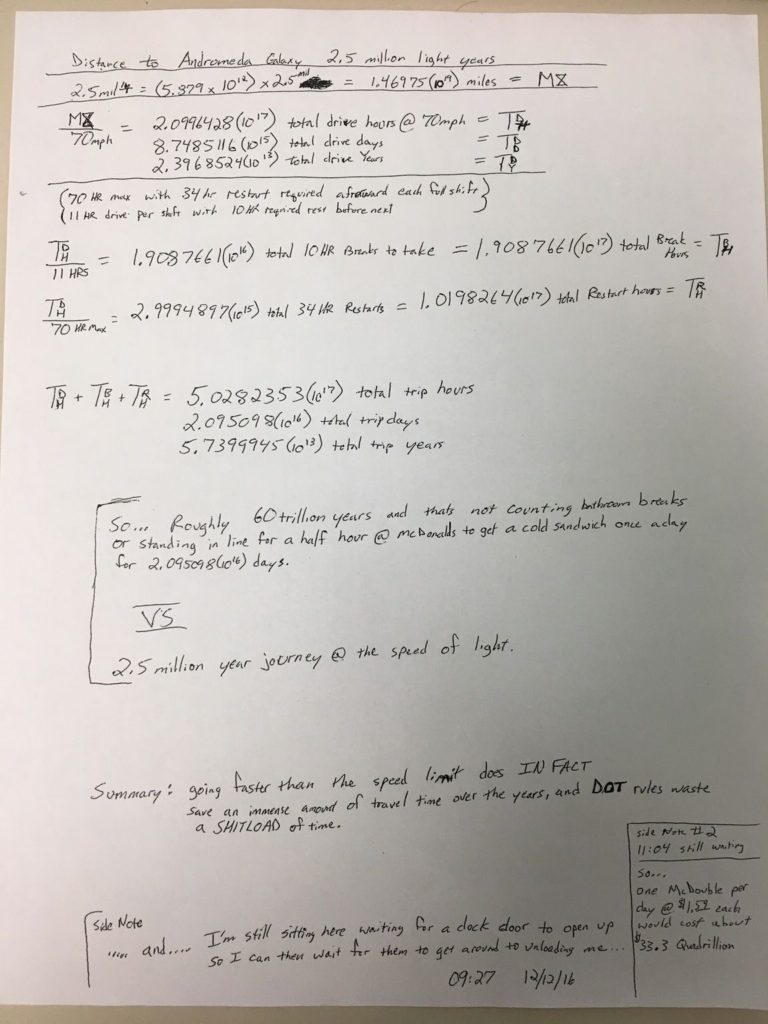 Distance to Andromeda Galaxy 2.5 million light years
2.5mil = (5.879 x 10¹²) x 2.5 mil = 1.46975(10¹⁹) miles = M
M / 70mph = 2.0996428(10¹⁷) total drive hours @ 70mph = TDH
8.7485116(10¹⁵) total drive days = TDD
2.3968524(10¹³) total drive years = TDY
(70 HR max with 34 hr restart required afterward each full shift)
(11 HR drive per shift with 10 HR required rest before next)
TDH / 11 HRS = 1.9087661(10¹⁶) total 10HR Breaks to take = 1.9087661(10¹⁷) total Break Hours = TBH
TDH / 70 HR max = 2.9994897(10¹⁵) total 34 HR Restarts = 1.0198264(10¹⁷) total Restart hours = TRH
TDH + TBH + TRH = 5.0282353(10¹⁷) total trip hours
2.095098(10¹⁶) total trip days
5.7399945(10¹³) total trip years
So... Roughly 60 trillion years and thats not counting bathroom breaks
or standing in line for a half hour @ mcDonalds to get a cold sandwich once a day
for 2.095098(10¹⁶) days.
VS
2.5 million year journey @ the speed of light.
Summary: going faster than the speed limit does IN FACT
save an immense amount of travel time over the years, and DOT rules waste
a SHITLOAD of time.
side Note #2
11:04 still waiting
So...
one McDouble per
day @ $1.59 each
would cost about
$33.3 Quadrillion
Side Note
..... and..... I'm still sitting here waiting for a dock door to open up
so I can then wait for them to get around to unloading me...
09:27 12/12/16